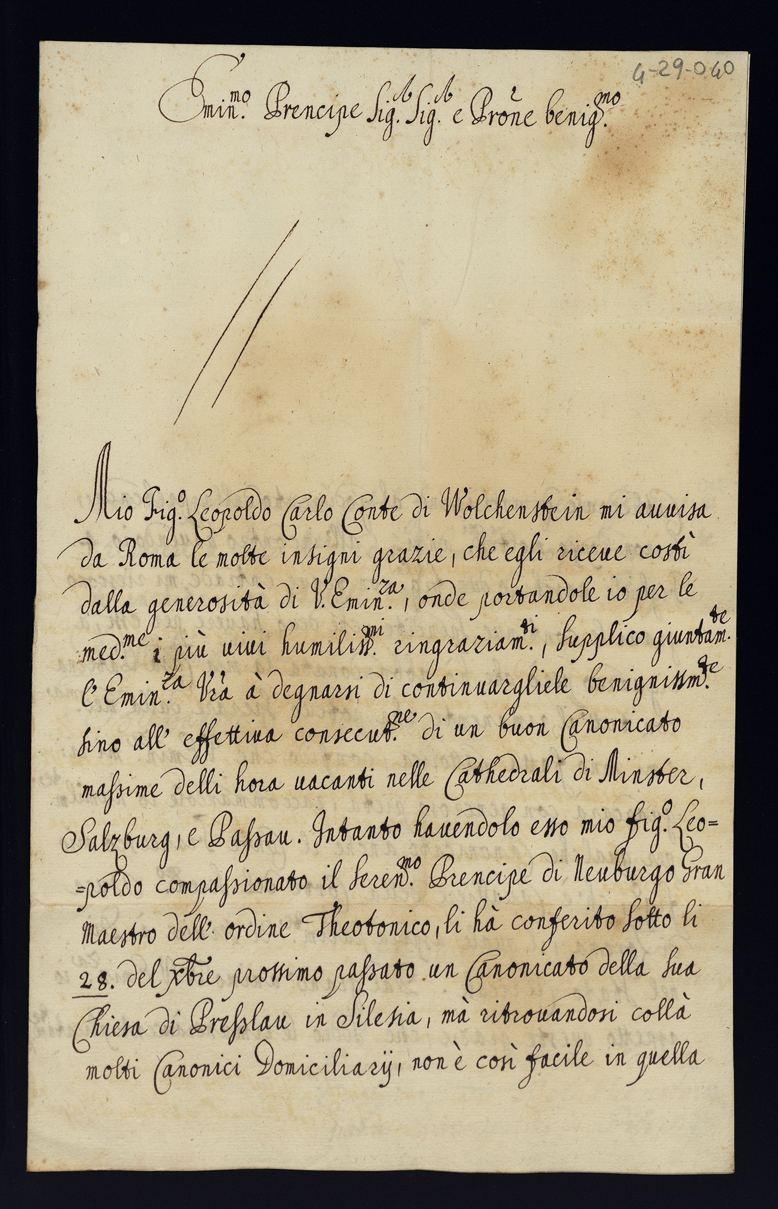 4-29-040
Emin.mo Prencipe Sig.r Sig.r e Pro̅ne benig.mo
Mio Fig.o Leopoldo Carlo Conte di Wolchenstein mi auuisa
da Roma le molte insigni grazie, che egli riceue costì
dalla generosità di V. Emin.za, onde portandole io per le
med.me i più uiui humiliss.mi ringraziam.ti, supplico giuntam.te
l'Emin.za Vr̃a à degnarsi di continuargliele benignissm.te
sino all' effettiua consecut.ne di un buon Canonicato
massime delli hora uacanti nelle Cathedrali di Minster,
Salzburg, e Passau. Intanto hauendolo esso mio fig.o Leo=
=poldo compassionato il Seren.mo Prencipe di Neuburgo Gran
Maestro dell' ordine Theotonico, li hà conferito sotto li
28. del xbre prossimo passato un Canonicato della sua
Chiesa di Presslau in Silesia, mà ritrouandosi collà
molti Canonici Domiciliarij, non è così facile in quella